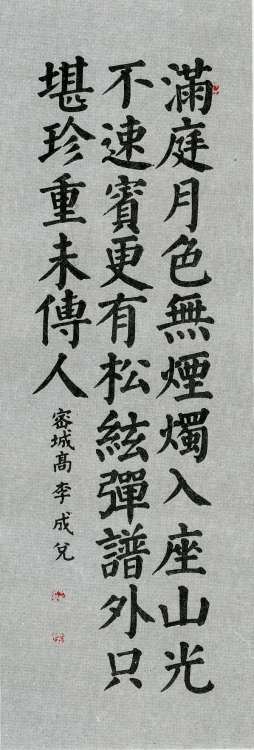 滿庭月色無煙燭入座山光
不速賓更有松絃彈譜外只
堪珍重未傳人
密城髙李成兌